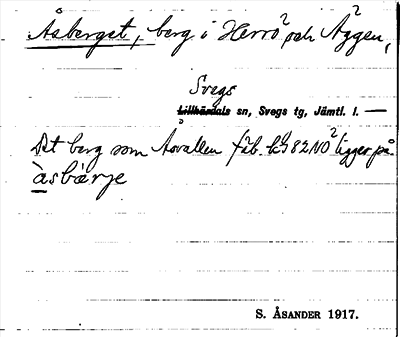 Åsberget, berg i Herrö och Äggen,
Svegs
Lillhärdals sn, Svegs tg, Jämtl. l. —
Det berg som Åsvallen fäb. 982 NO ligger på.
àsbærje
S. ÅSANDER 1917.